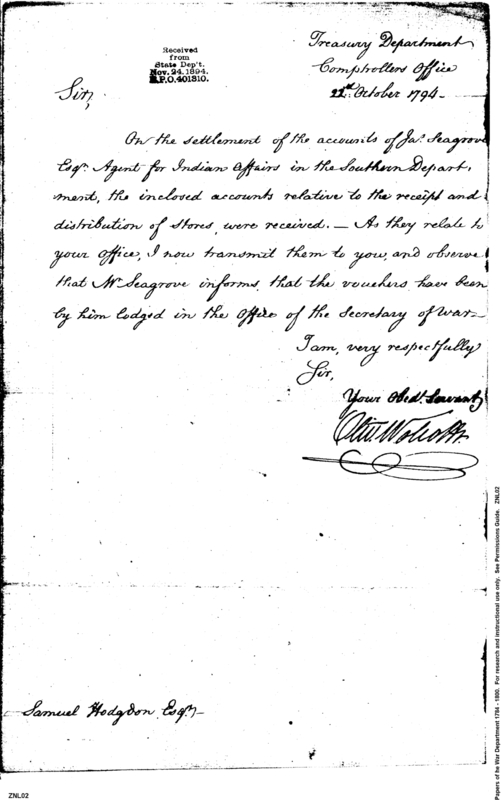 Received
from
State Dep't.
Nov. 24. 1894.
R.P.O. 401810.
Treasury Department
Comptrollers Office
22d. October 1794—
Sir,
On the settlement of the accounts of Jas. Seagrove
Esqr. Agent for Indian Affairs in the Southern Depart,
ment, the inclosed accounts relative to the receipt and
distribution of Stores were received. — As they relate to
your Office, I now transmit them to you, and observe
that Mr. Seagrove informs, that the vouchers have been
by him lodged in the Office of the Secretary of War—
I am, very respectfully
Sir,
Your Obedt. Servant
Olivr. Wolcott Jr.
Samuel Hodgdon Esqr.—
Papers of he War Department 1784 - 1800. For research and instructional use only. See Permissions Guide. ZNL02
ZNL02